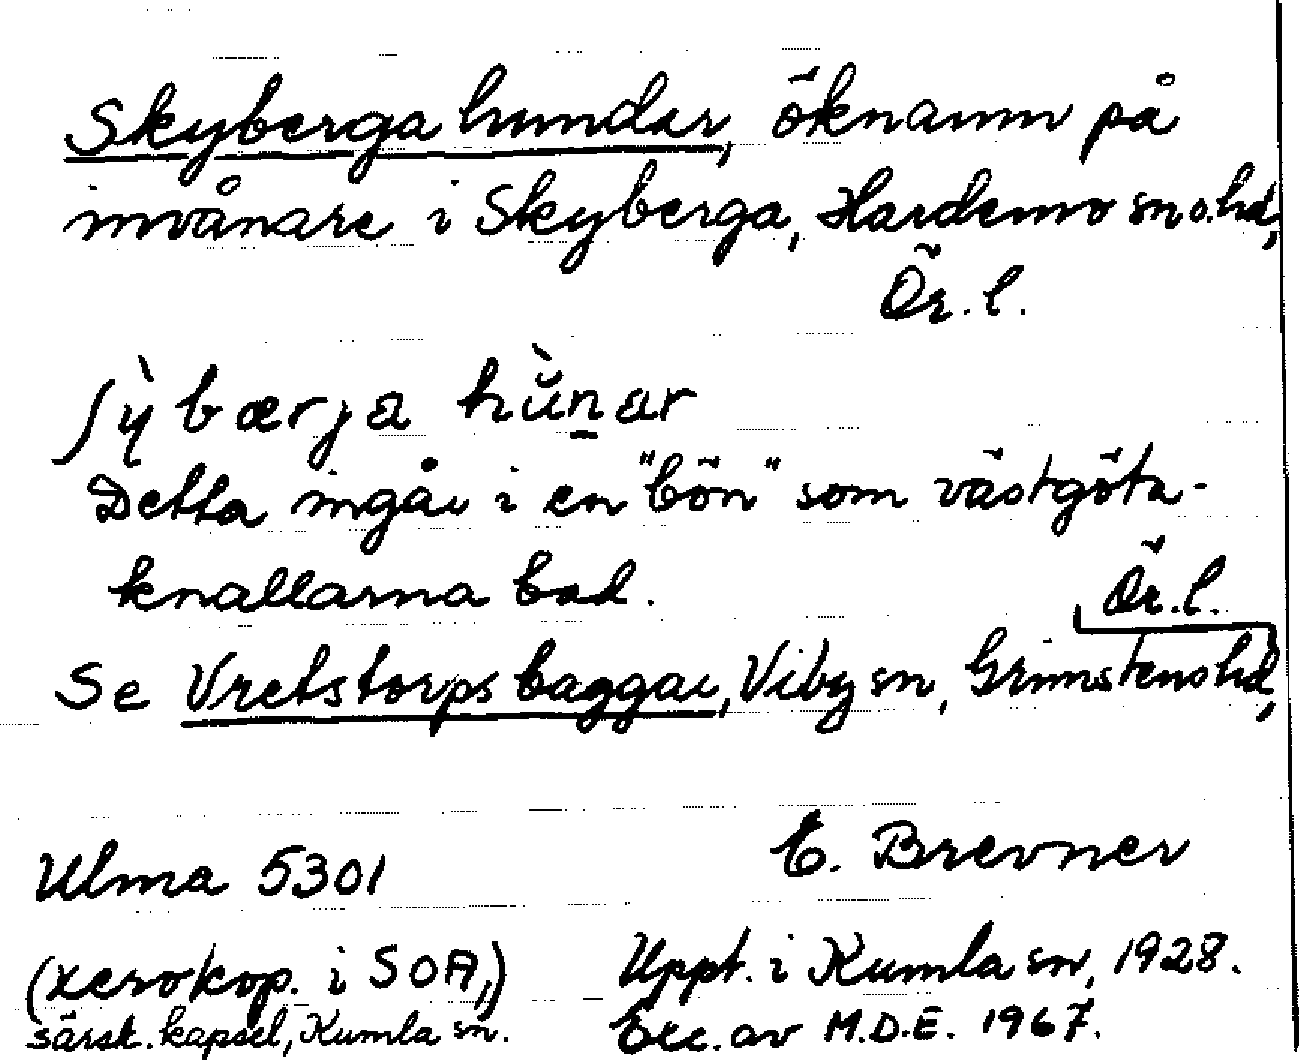 Skyberga hundar, öknamn på
invånare i Skyberga, Hardemo sn o. hd,
Ör. l.
ʃỳbærja hùn̠ar
Detta ingår i en "bön" som västgöta-
knallarna bad.
Se Vretstorps baggar, Viby sn, Grimstens hd, Ör. l.
Ulma 5301
E. Brevner
(xerokop. i SOA,)
särsk. kapsel, Kumla sn.
Uppt. i Kumla sn, 1928.
Exc. av M.D.E. 1967.